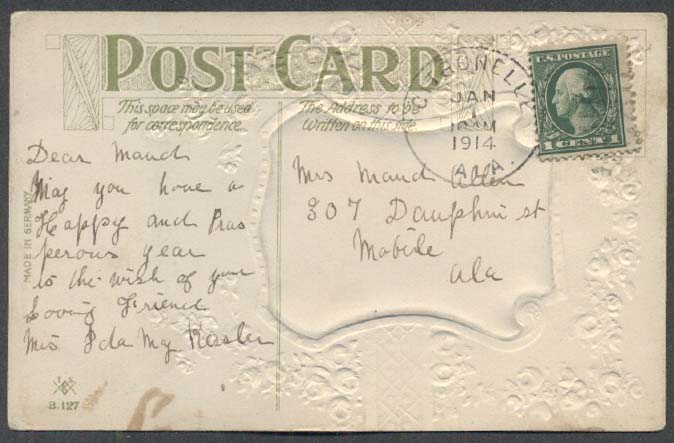 POST CARD
This space may be used
for correspondence.
The Address to be
Written on this side.
U.S. POSTAGE
1 CENT 1
JAN
1
1914
ALA.
MADE IN GERMANY
Dear Maud
May you have a
Happy and Pros
perous year
is the wish of your
Loving Friend
Mrs Ida
Mrs Maud Allen
307 Dauphin st
Mobile
Ala
B.127